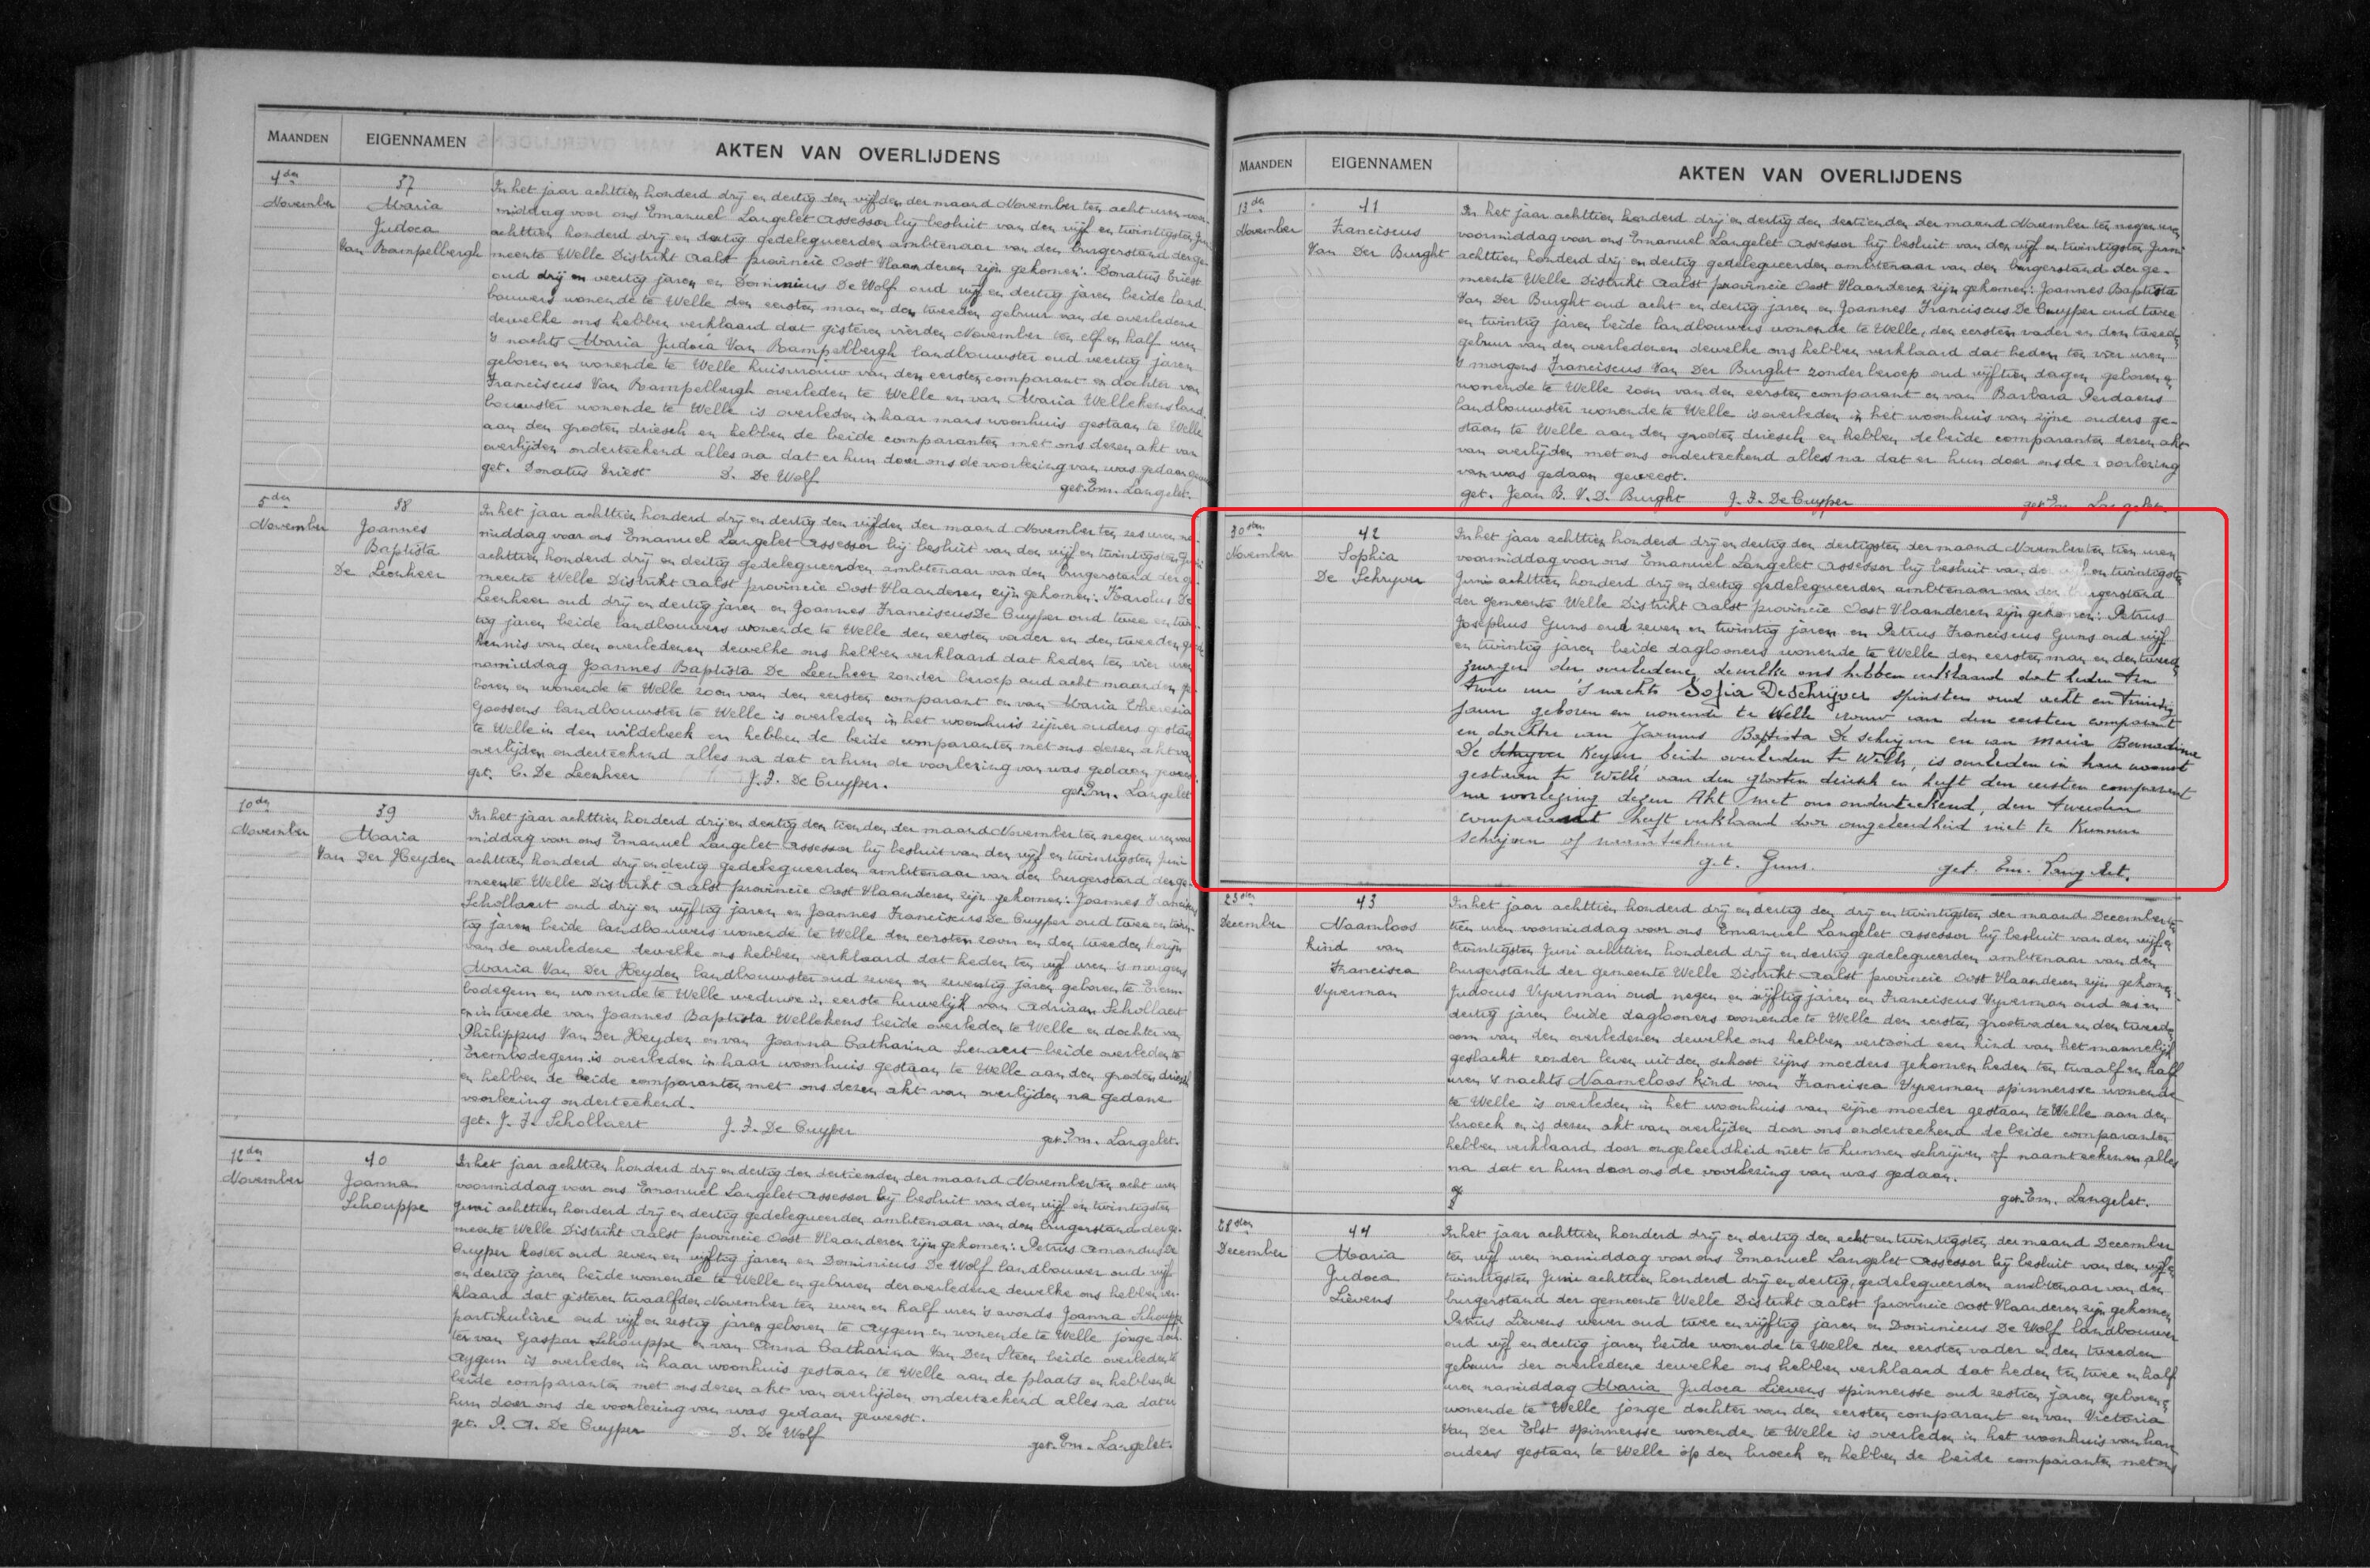 MAANDEN EIGENNAMEN AKTEN VAN OVERLIJDENS
4den November
37
Maria
Judoca
Van Rampelbergh
In het jaar achttien honderd drij en dertig den vijfden der maand November ten acht uren voor-
middag voor ons Emanuel Langelet Assessor bij besluit van den vijf en twintigsten Juni
achttien honderd drij en dertig gedelegueerden ambtenaar van den burgerstand der ge-
meente Welle Distrikt Aalst provincie Oost Vlaanderen zijn gekomen: Donatus Triest
oud drij en veertig jaren en Dominicus De Wolf oud vijf en dertig jaren beide land-
bouwers wonende te Welle den eersten man en den tweeden gebuur van de overledene
dewelke ons hebben verklaard dat gisteren vierden November ten elf en half uren
's nachts Maria Judoca Van Rampelbergh landbouwster oud veertig jaren
geboren en wonende te Welle huisvrouw van den eersten comparant en dochter van
Franciscus Van Rampelbergh overleden te Welle en van Maria Wellekens land-
bouwster wonende te Welle is overleden in haar mans woonhuis gestaan te Welle
aan den grooten driesch en hebben de beide comparanten met ons dezen akt van
overlijden onderteekend alles na dat er hun door ons de voorlezing van was gedaan
get. Donatus Triest D. De Wolf get. Em. Langelet.
5den November
38
Joannes
Baptista
De Leenheer
In het jaar achttien honderd drij en dertig den vijfden der maand November ten zes uren na-
middag voor ons Emanuel Langelet Assessor bij besluit van den vijf en twintigsten Juni
achttien honderd drij en dertig gedelegueerden ambtenaar van den burgerstand der ge-
meente Welle Distrikt Aalst provincie Oost Vlaanderen zijn gekomen: Karolus De
Leenheer oud drij en dertig jaren en Joannes Franciscus De Cuyper oud twee en twin-
tig jaren beide landbouwers wonende te Welle den eersten vader en den tweeden
kennis van den overledenen dewelke ons hebben verklaard dat heden ten vier uren
namiddag Joannes Baptista De Leenheer zonder beroep oud acht maanden ge-
boren en wonende te Welle zoon van den eersten comparant en van Maria Theresia
Goossens landbouwster te Welle is overleden in het woonhuis zijner ouders gestaan
te Welle in den wildebeek en hebben de beide comparanten met ons dezen akt van
overlijden onderteekend alles na dat er hun de voorlezing van was gedaan geweest.
get. C. De Leenheer J. F. De Cuyper. get. Em. Langelet
10den November
39
Maria
Van Der Heyden
In het jaar achttien honderd drij en dertig den tienden der maand November ten negen uren voor-
middag voor ons Emanuel Langelet Assessor bij besluit van den vijf en twintigsten Juni
achttien honderd drij en dertig gedelegueerden ambtenaar van den burgerstand der ge-
meente Welle Distrikt Aalst provincie Oost Vlaanderen zijn gekomen: Joannes Franciscus
Schollaert oud drij en vijftig jaren en Joannes Franciscus De Cuyper oud twee en twin-
tig jaren beide landbouwers wonende te Welle den eersten zoon en den tweeden kozijn
van de overledene dewelke ons hebben verklaard dat heden ten vijf uren 's morgens
Maria Van Der Heyden landbouwster oud zeven en zeventig jaren geboren te Erem-
bodegem en wonende te Welle weduwe in eerste huwelijk van Adriaan Schollaert
en in tweede van Joannes Baptista Wellekens beide overleden te Welle en dochter van
Philippus Van Der Heyden en van Joanna Catharina Lienaert beide overleden te
Erembodegem is overleden in haar woonhuis gestaan te Welle aan den grooten driesch
en hebben de beide comparanten met ons dezen akt van overlijden na gedane
voorlezing onderteekend.
get. J. F. Schollaert J. F. De Cuyper get. Em. Langelet.
12den November
40
Joanna
Schouppe
In het jaar achttien honderd drij en dertig den dertienden der maand November ten acht uren
voormiddag voor ons Emanuel Langelet Assessor bij besluit van den vijf en twintigsten
Juni achttien honderd drij en dertig gedelegueerden ambtenaar van den burgerstand der ge-
meente Welle Distrikt Aalst provincie Oost Vlaanderen zijn gekomen: Petrus Amandus De
Cuyper koster oud zeven en vijftig jaren en Dominicus De Wolf landbouwer oud vijf
en dertig jaren beide wonende te Welle en geburen der overledene dewelke ons hebben ver-
klaard dat gisteren twaalfden November ten zeven en half uren 's avonds Joanna Schouppe
partikuliere oud vijf en zestig jaren geboren te Aygem en wonende te Welle jonge doch-
ter van Gaspar Schouppe en van Anna Catharina Van Den Steen beide overleden te
Aygem is overleden in haar woonhuis gestaan te Welle aan de plaats en hebben de
beide comparanten met ons dezen akt van overlijden onderteekend alles na dat er
hun door ons de voorlezing van was gedaan geweest.
get. P. A. De Cuyper D. De Wolf get. Em. Langelet.
MAANDEN EIGENNAMEN AKTEN VAN OVERLIJDENS
13den November
41
Franciscus
Van Der Burght
In het jaar achttien honderd drij en dertig den dertienden der maand November ten negen uren
voormiddag voor ons Emanuel Langelet Assessor bij besluit van den vijf en twintigsten Juni
achttien honderd drij en dertig gedelegueerden ambtenaar van den burgerstand der ge-
meente Welle Distrikt Aalst provincie Oost Vlaanderen zijn gekomen: Joannes Baptista
Van Der Burght oud acht en dertig jaren en Joannes Franciscus De Cuyper oud twee
en twintig jaren beide landbouwers wonende te Welle, den eersten vader en den tweeden
gebuur van den overledenen dewelke ons hebben verklaard dat heden ten vier uren
's morgens Franciscus Van Der Burght zonder beroep oud vijftien dagen geboren en
wonende te Welle zoon van den eersten comparant en van Barbara Perdaens
landbouwster wonende te Welle is overleden in het woonhuis van zijne ouders ge-
staan te Welle aan den grooten driesch en hebben de beide comparanten dezen akt
van overlijden met ons onderteekend alles na dat er hun door ons de voorlezing
van was gedaan geweest.
get. Jean B. V. D. Burght J. F. De Cuyper get. Em. Langelet.
30sten November
42
Sophia
De Schryver
In het jaar achttien honderd drij en dertig den dertigsten der maand November ten tien uren
voormiddag voor ons Emanuel Langelet Assessor bij besluit van den vijf en twintigsten
Juni achttien honderd drij en dertig gedelegueerden ambtenaar van den burgerstand
der gemeente Welle Distrikt Aalst provincie Oost Vlaanderen zijn gekomen: Petrus
Josephus Guns oud zeven en twintig jaren en Petrus Franciscus Guns oud vijf
en twintig jaren beide daglooners wonende te Welle den eersten man en den tweeden
zwager der overledene, dewelke ons hebben verklaard dat heden ten
twee ure 's nachts Sofia De Schrijver spinster oud acht en twintig
jaren geboren en wonende te Welle vrouw van den eersten comparant
en dochter van Joannes Baptista De Schrijver en van Maria Bernardina
De Schryver Keyser beide overleden te Welle, is overleden in haar woonst
gestaan te Welle aan den grooten driesch en heeft den eersten comparant
na voorlezing dezen Akt met ons onderteekend, den tweeden
comparant heeft verklaard door ongeleerdheid niet te kunnen
schrijven of naamteekenen
get. Guns. get. Em. Langelet.
23sten December
43
Naamloos
kind van
Francisca
Vyverman
In het jaar achttien honderd drij en dertig den drij en twintigsten der maand December ten
tien uren voormiddag voor ons Emanuel Langelet Assessor bij besluit van den vijf en
twintigsten Juni achttien honderd drij en dertig gedelegueerden ambtenaar van den
burgerstand der gemeente Welle Distrikt Aalst provincie Oost Vlaanderen zijn gekomen
Judocus Vyverman oud negen en vijftig jaren en Franciscus Vyverman oud zes en
dertig jaren beide daglooners wonende te Welle den eersten grootvader en den tweeden
oom van den overledenen dewelke ons hebben vertoond een kind van het mannelijk
geslacht zonder leven uit den schoot zijns moeders gekomen heden ten twaalf en half
uren 's nachts Naameloos Kind van Francisca Vyverman spinnersse wonende
te Welle is overleden in het woonhuis van zijne moeder gestaan te Welle aan den
broeck en is dezen akt van overlijden door ons onderteekend de beide comparanten
hebben verklaard door ongeleerdheid niet te kunnen schrijven of naamteekenen alles
na dat er hun door ons de voorlezing van was gedaan.
get. Em. Langelet.
28sten December
44
Maria
Judoca
Lievens
In het jaar achttien honderd drij en dertig den acht en twintigsten der maand December
ten vijf uren namiddag voor ons Emanuel Langelet Assessor bij besluit van den vijf en
twintigsten Juni achttien honderd drij en dertig, gedelegueerden ambtenaar van den
burgerstand der gemeente Welle Distrikt Aalst provincie Oost Vlaanderen zijn gekomen
Petrus Lievens wever oud twee en vijftig jaren en Dominicus De Wolf landbouwer
oud vijf en dertig jaren beide wonende te Welle den eersten vader en den tweeden
gebuur der overledene dewelke ons hebben verklaard dat heden ten twee en half
uren namiddag Maria Judoca Lievens spinnersse oud zestien jaren geboren en
wonende te Welle jonge dochter van den eersten comparant en van Victoria
Van Der Elst spinnersse wonende te Welle is overleden in het woonhuis van hare
ouders gestaan te Welle op den broeck en hebben de beide comparanten met ons